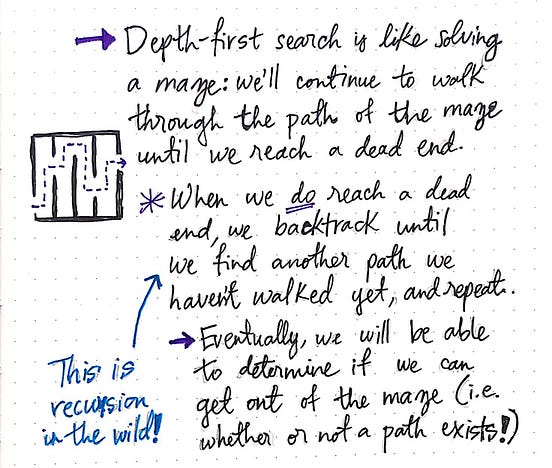 Depth-first search is like solving
a maze: we'll continue to walk
through the path of the maze
until we reach a dead end.
* When we do reach a dead
end, we backtrack until
we find another path we
haven't walked yet, and repeat.
→ Eventually, we will be able
to determine if we can
get out of the maze (i.e.
whether or not a path exists!)
This is
recursion
in the wild!